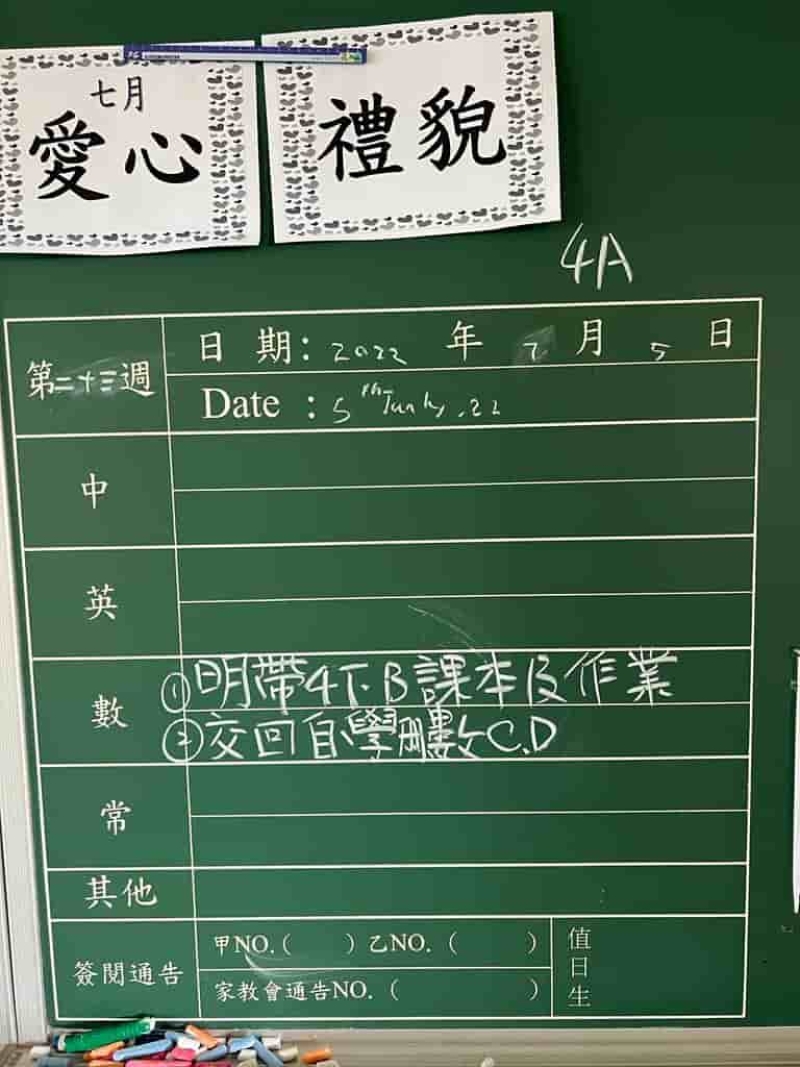 七月
愛心
禮貌
4A
第二十三週
日 期: 2022 年 7 月 5 日
Date : 5th
.22
中
英
數
①明帶4下.B課本及作業
②交回自學冊數C.D
常
其他
簽閱通告
甲NO.( ) 乙NO. ( )
家教會通告NO. ( )
值日生